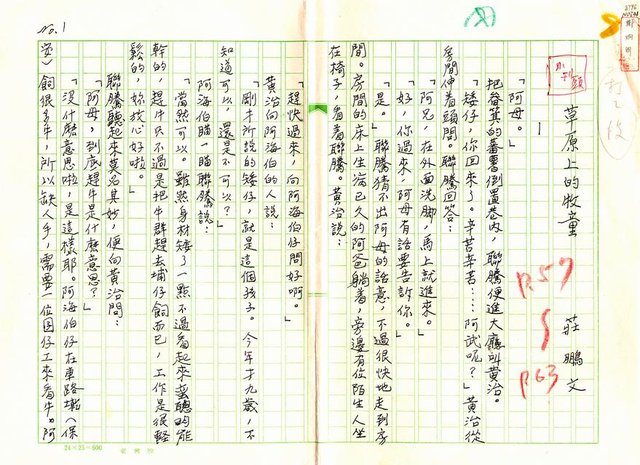 草原上的牧童
莊鵬文
P.57
P.63
1
「阿母。」
把畚箕的蕃薯倒置巷內，聯騰便進大廳叫黃治。
「矮仔，你回來了。辛苦辛苦…阿試呢？」黃治從
房間伸着頭問。聯騰回答：
「阿兄，在外面洗脚，馬上就進來。」
「好，你過來，阿母有話要告訴你。」
「是。」聯騰猜不出阿母的話意，不過很快地走到房
間。房間的床上生病已久的阿爸躺着，旁邊有位陌生人坐
在椅子，看着聯騰。黃治說：
「趕快過來，向阿海伯仔問好啊。」
黃治向阿海伯的人說：
「剛才所說的矮仔，就是這個孩子。今年才九歲，不
知道可以，還是不可以？」
阿海伯瞄一瞄聯騰說：
「當然可以。雖然身材矮了一點不過看起來蛮聰的能
幹的，趕牛只不過是把牛群趕去埔仔飼而已，工作是很輕
鬆的，妳放心好啦。」
聯騰聽起來莫名其妙，便向黃治問：
「阿母，到底趕牛是什麼意思？」
「沒什麼意思啦，是這樣耶。阿海伯仔在車路墘（保
安）飼很多牛，所以缺人手，需要一位囝仔工來看牛。阿
No.1
24×25=600